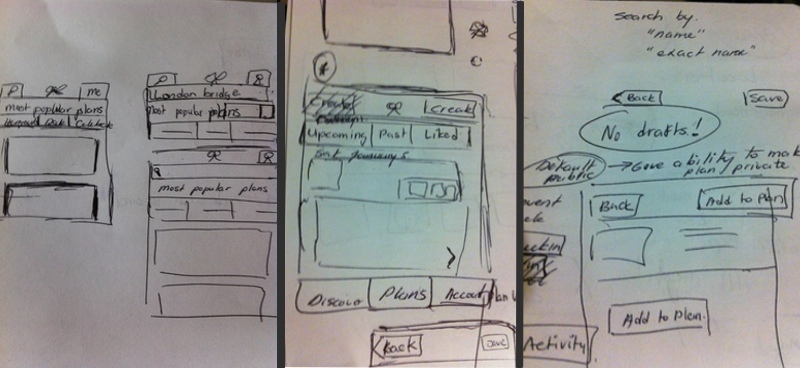 me
most popular plans
London bridge
most popular plans
most popular plans
Create
Create
Upcoming Past Liked
Sat January 5
Discover Plans Account
Back
Save
Search by.
"name"
"exact name"
Back
Save
No drafts!
Default public
→Gave ability to make
plan private
Back
Add to Plan
Add to Plan.
Activity